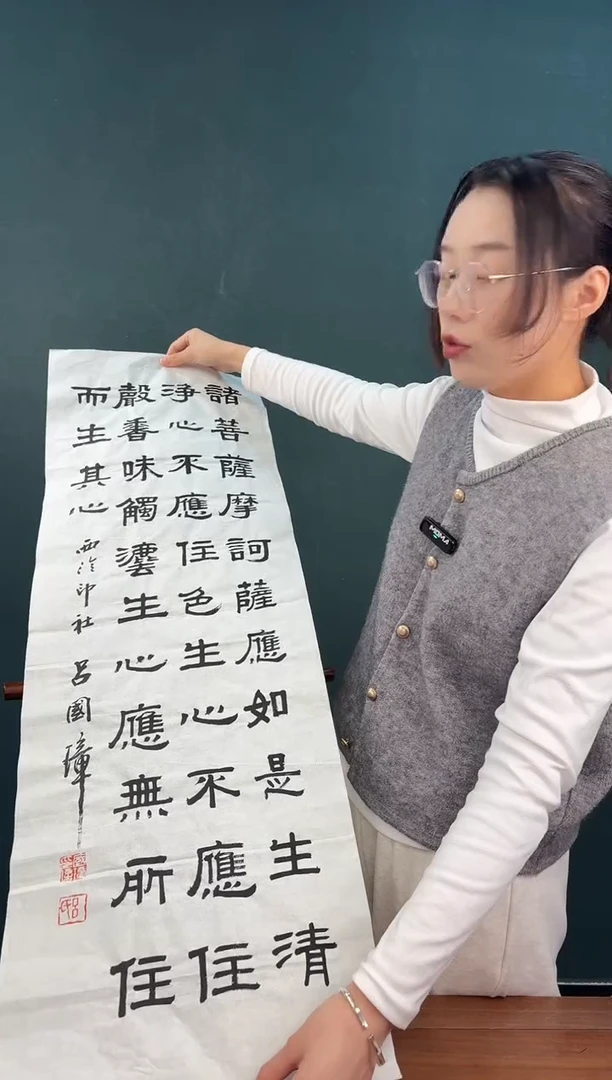 諸菩薩摩訶薩應如是生清
浄心不應住色生心不應住
聲香味觸灋生心應無所住
而生其心
西泠印社 呂國璋
MOMA